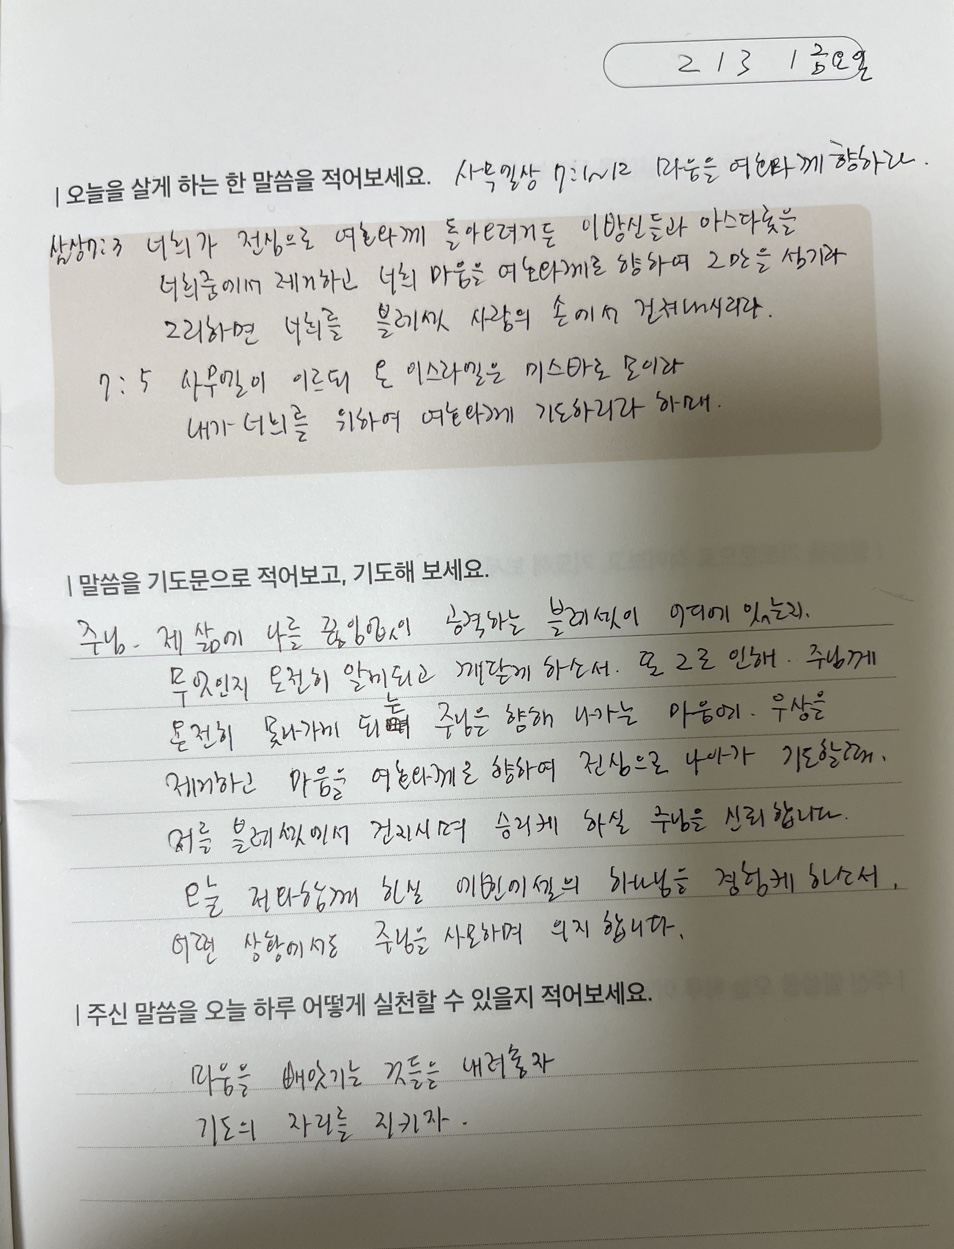 2 / 3 / 금요일
| 오늘을 살게 하는 한 말씀을 적어보세요. 사무일상 7:1~12 마음을 여호와께 향하라.
삼상7:3 너희가 전심으로 여호와께 돌아오려거든 이방신들과 아스다롯을
너희중에서 제거하고 너희 마음을 여호와께로 향하여 그만을 섬기라
그리하면 너희를 블레셋 사람의 손에서 건져내시리라.
7:5 사무엘이 이르되 온 이스라엘은 미스바로 모이라
내가 너희를 위하여 여호와께 기도하리라 하매.
| 말씀을 기도문으로 적어보고, 기도해 보세요.
주님. 제 삶에 나를 끊임없이 공격하는 블레셋이 어디에 있는지.
무엇인지 온전히 알게되고 깨닫게 하소서. 또 그로 인해. 주님께
온전히 못나가게 되는 주님을 향해 나가는 마음에. 우상을
제거하고 마음을 여호와께로 향하여 전심으로 나아가 기도할때.
저를 블레셋에서 건지시며 승리케 하실 주님을 신뢰합니다.
오늘 저와함께 하실 에벤에셀의 하나님을 경험케 하소서.
어떤 상황에서도 주님을 사모하며 의지합니다.
| 주신 말씀을 오늘 하루 어떻게 실천할 수 있을지 적어보세요.
마음을 빼앗기는 것들을 내려놓자
기도의 자리를 지키자.